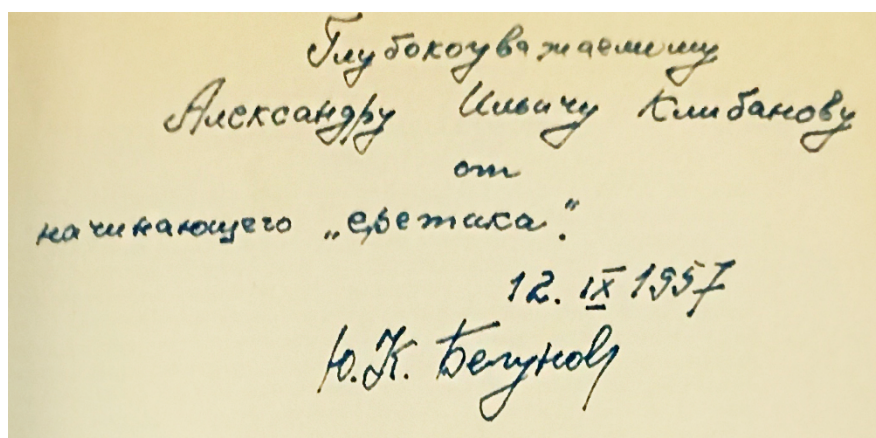 Глубокоуважаемому
Александру Ильичу Клибанову
от
начинающего „еретика“.
12. IX 1957
Ю. К. Бегунов